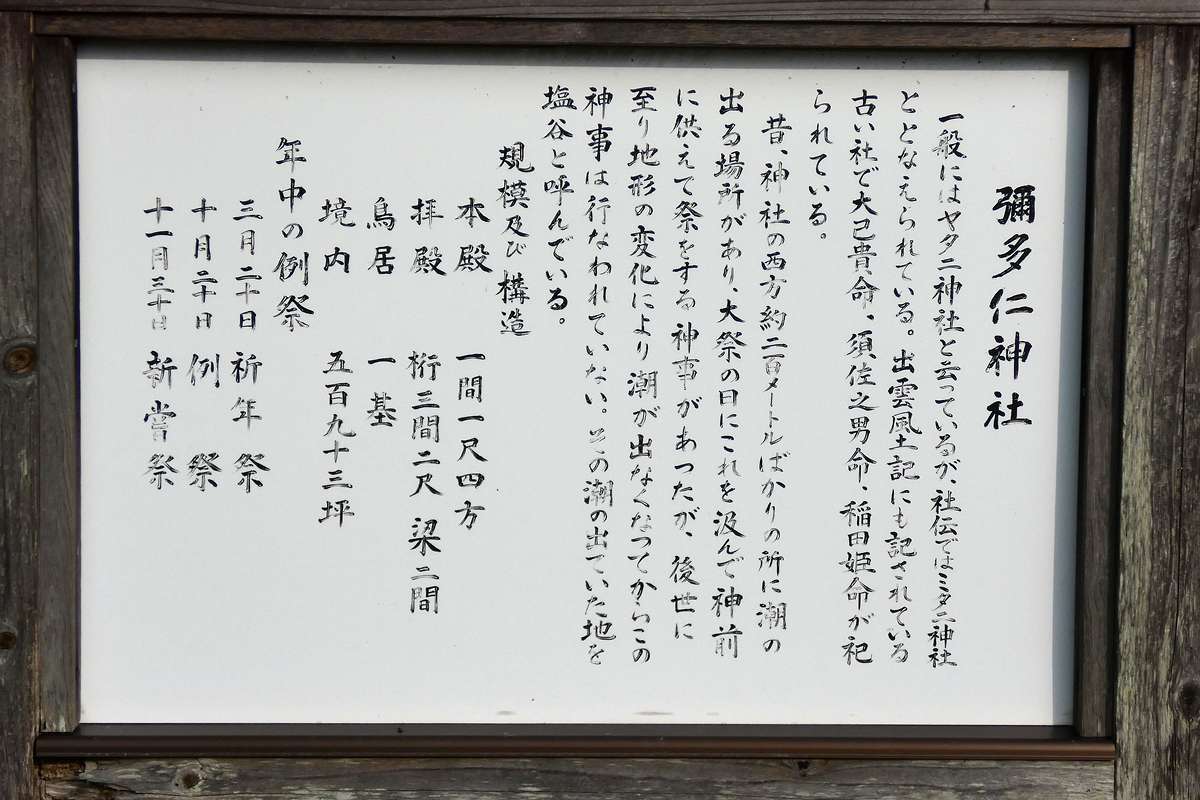 彌多仁神社
一般にはヤタニ神社と云っているが、社伝ではミタニ神社
ととなえられている。出雲風土記にも記されている
古い社で大己貴命、須佐之男命、稲田姫命が祀
られている。
昔、神社の西方約二百メートルばかりの所に潮の
出る場所があり、大祭の日にこれを汲んで神前
に供えて祭をする神事があったが、後世に
至り地形の変化により潮が出なくなってからこの
神事は行なわれていない。その潮の出ていた地を
塩谷と呼んでいる。
規模及び構造
本殿 一間一尺四方
拝殿 桁三間二尺 梁二間
鳥居 一基
境内 五百九十三坪
年中の例祭
三月二十日 祈年祭
十月二十日 例祭
十一月三十日 新嘗祭